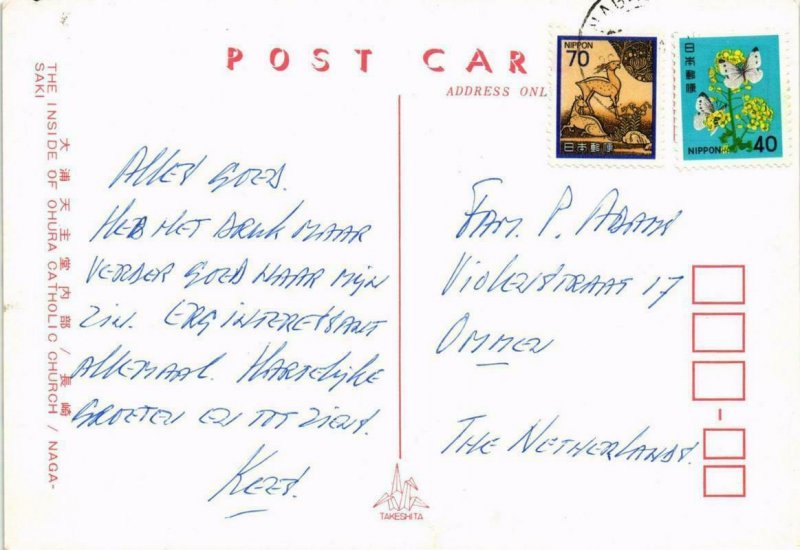 POST CAR
ADDRESS ONL
NIPPON
70
日本郵便
日本郵便
NIPPON 40
大浦天主堂内部 / 長崎
THE INSIDE OF OHURA CATHOLIC CHURCH / NAGA-
SAKI
Alles goed.
Heb het druk maar
verder goed naar mijn
zin. Erg interessant
allemaal. Hartelijke
groeten en tot ziens.
Kees.
Fam. P. Adams
Violenstraat 17
Ommen
The Netherlands.
TAKESHITA